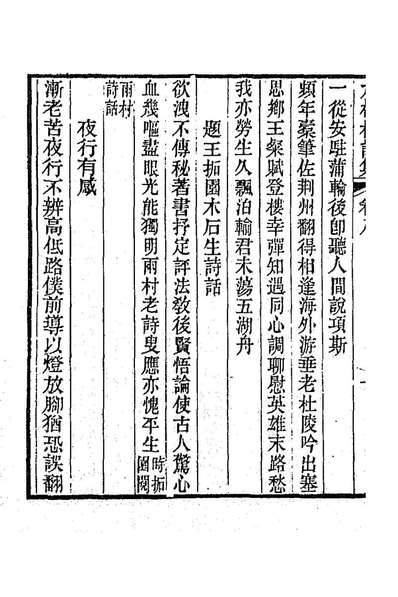 一從安駐蒲輪後卽聽人間說項斯
頻年橐筆佐荆州翻得相逢海外游垂老杜陵吟出塞
思鄉王粲賦登樓幸彈知遇同心調聊慰英雄末路愁
我亦勞生久飄泊輸君未蕩五湖舟
題王拓園木石生詩話
欲洩不傳秘著書抒定評法敎後賢悟論使古人驚心
血幾嘔盡眼光能獨明雨村老詩叟應亦愧平生時拓園閱
雨村詩話
夜行有感
漸老苦夜行不辨高低路僕前導以燈放腳猶恐誤翻